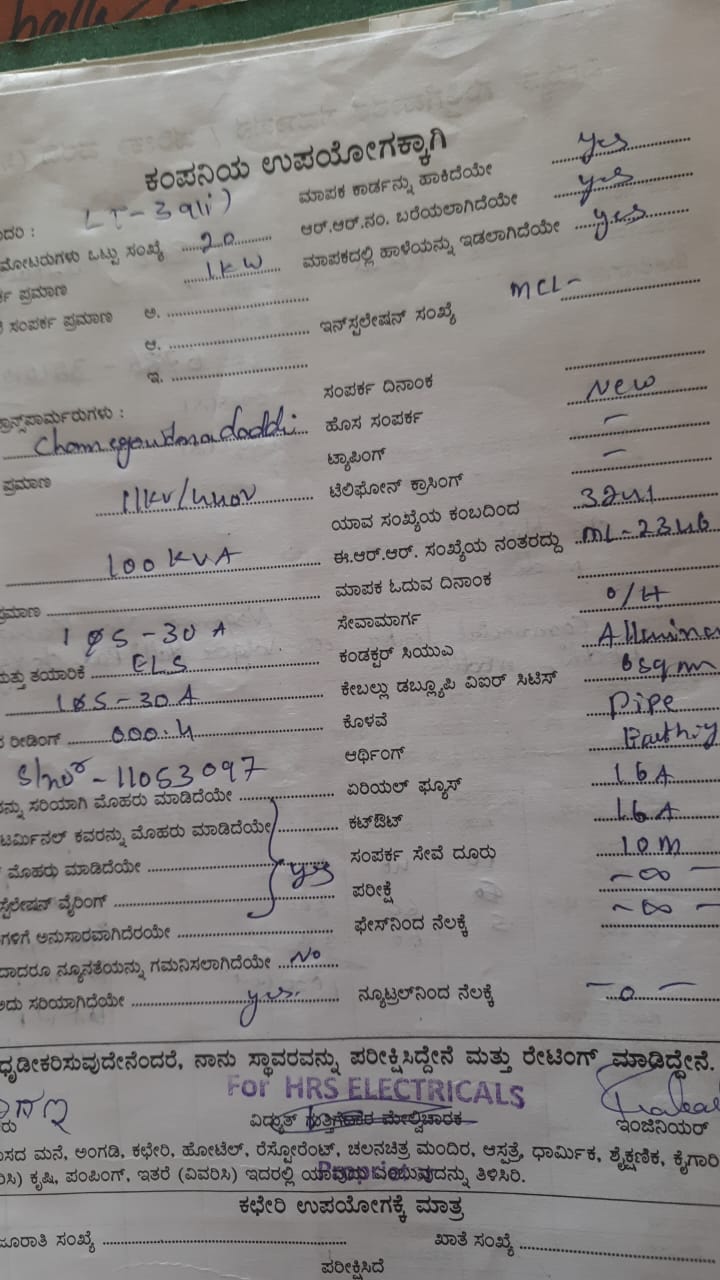 ಕಂಪನಿಯ ಉಪಯೋಗಕ್ಕಾಗಿ
ದರ : LT-3a(ii) ಮಾಪಕ ಕಾರ್ಡನ್ನು ಹಾಕಿದೆಯೇ yes
ಮೋಟರುಗಳು ಒಟ್ಟು ಸಂಖ್ಯೆ 20 ಆರ್.ಆರ್.ನಂ. ಬರೆಯಲಾಗಿದೆಯೇ yes
ಪ್ರಮಾಣ 1kW ಮಾಪಕದಲ್ಲಿ ಹಾಳೆಯನ್ನು ಇಡಲಾಗಿದೆಯೇ yes
ಸಂಪರ್ಕ ಪ್ರಮಾಣ ಅ.
ಆ. ಇನ್‌ಸ್ಟಲೇಷನ್ ಸಂಖ್ಯೆ MCL-
ಇ.
ಸಂಪರ್ಕ ದಿನಾಂಕ
ಟ್ರಾನ್ಸ್‌ಫಾರ್ಮರುಗಳು : ಹೊಸ ಸಂಪರ್ಕ New
ಟ್ಯಾಪಿಂಗ್ –
ಪ್ರಮಾಣ 11kv/440v ಟೆಲಿಫೋನ್ ಕ್ರಾಸಿಂಗ್ –
ಯಾವ ಸಂಖ್ಯೆಯ ಕಂಬದಿಂದ
100 KVA ಈ.ಆರ್.ಆರ್. ಸಂಖ್ಯೆಯ ನಂತರದ್ದು ML-2346
ಪ್ರಮಾಣ ಮಾಪಕ ಓದುವ ದಿನಾಂಕ
-30 A ಸೇವಾಮಾರ್ಗ O/H
ಮತ್ತು ತಯಾರಿಕೆ ELS ಕಂಡಕ್ಟರ್ ಸಿಯುವಿ
-30A ಕೇಬಲ್ಲು ಡಬ್ಲ್ಯೂಪಿ ವಿಐರ್ ಸಿಟಿಸ್ 6sqmm
ರೀಡಿಂಗ್ 000.4 ಕೊಳವೆ Pipe
S/no - 11053097 ಆರ್ಥಿಂಗ್ Earthing
ಸರಿಯಾಗಿ ಮೊಹರು ಮಾಡಿದೆಯೇ ಏರಿಯಲ್ ಫ್ಯೂಸ್ 16A
ಟರ್ಮಿನಲ್ ಕವರನ್ನು ಮೊಹರು ಮಾಡಿದೆಯೇ ಕಟ್‌ಔಟ್ 16A
ಮೊಹರು ಮಾಡಿದೆಯೇ yes ಸಂಪರ್ಕ ಸೇವೆ ದೂರು 10M
ವೈರಿಂಗ್ ಪರೀಕ್ಷೆ -∞-
ಅನುಸಾರವಾಗಿದೆರಯೇ ಫೇಸ್‌ನಿಂದ ನೆಲಕ್ಕೆ -∞-
ನ್ಯೂನತೆಯನ್ನು ಗಮನಿಸಲಾಗಿದೆಯೇ No
ಅದು ಸರಿಯಾಗಿದೆಯೇ yes. ನ್ಯೂಟ್ರಲ್‌ನಿಂದ ನೆಲಕ್ಕೆ -0-
ಧೃಡೀಕರಿಸುವುದೇನೆಂದರೆ, ನಾನು ಸ್ಥಾವರವನ್ನು ಪರೀಕ್ಷಿಸಿದ್ದೇನೆ ಮತ್ತು ರೇಟಿಂಗ್ ಮಾಡಿದ್ದೇನೆ.
For HRS ELECTRICALS
ವಿದ್ಯುತ್ ಗುತ್ತಿಗೆದಾರ ಮೇಲ್ವಿಚಾರಕ ಇಂಜಿನಿಯರ್
ಮನೆ, ಅಂಗಡಿ, ಕಛೇರಿ, ಹೋಟೆಲ್, ರೆಸ್ಟೋರೆಂಟ್, ಚಲನಚಿತ್ರ ಮಂದಿರ, ಆಸ್ಪತ್ರೆ, ಧಾರ್ಮಿಕ, ಶೈಕ್ಷಣಿಕ, ಕೈಗಾರಿ
ಕೃಷಿ, ಪಂಪಿಂಗ್, ಇತರೆ (ವಿವರಿಸಿ) ಇದರಲ್ಲಿ ಯಾವುದು ಎಂಬುವುದನ್ನು ತಿಳಿಸಿರಿ.
ಕಛೇರಿ ಉಪಯೋಗಕ್ಕೆ ಮಾತ್ರ
ಜೂರಾತಿ ಸಂಖ್ಯೆ ಖಾತೆ ಸಂಖ್ಯೆ
ಪರೀಕ್ಷಿಸಿದೆ